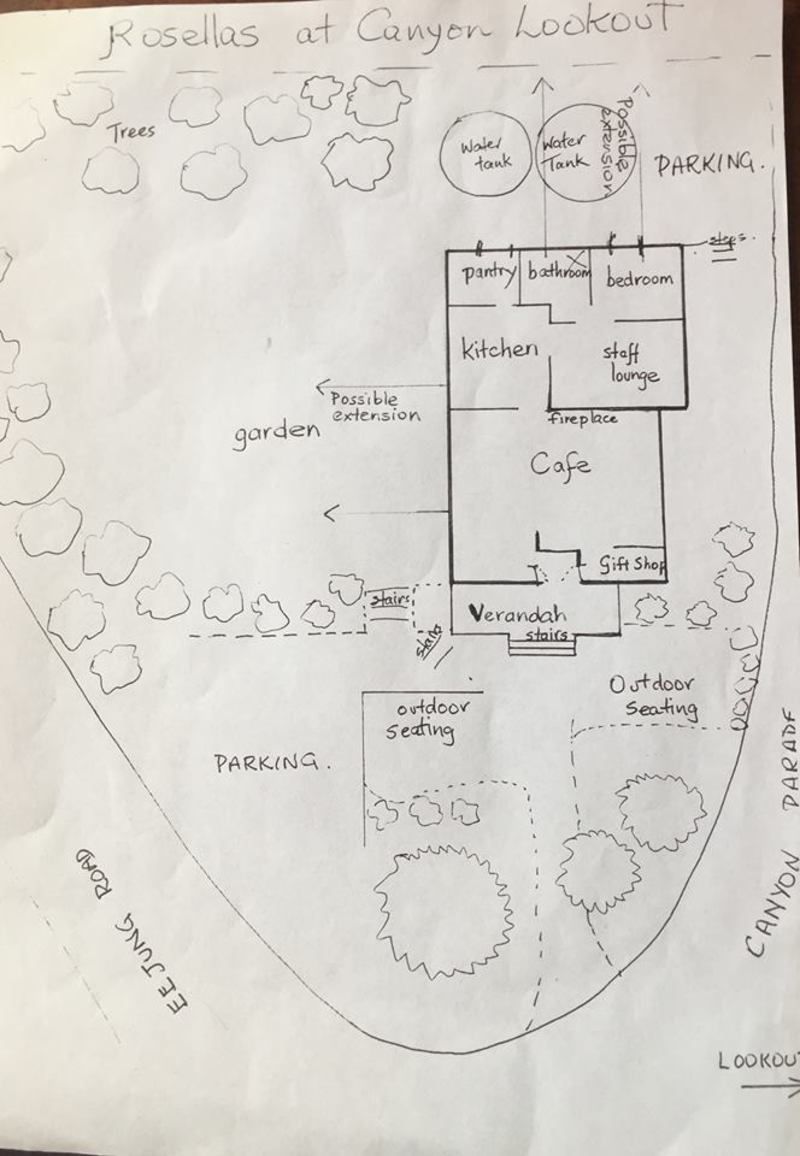 Rosellas at Canyon Lookout
Trees
Water
tank
Water
Tank
Possible
extension
PARKING.
steps.
pantry
bathroom
bedroom
Kitchen
staff
lounge
Possible
extension
garden
fireplace
Cafe
Gift Shop
stairs
Verandah
stairs
stairs
outdoor
seating
Outdoor
Seating
PARKING.
EEJUNG ROAD
CANYON PARADE
LOOKOUT